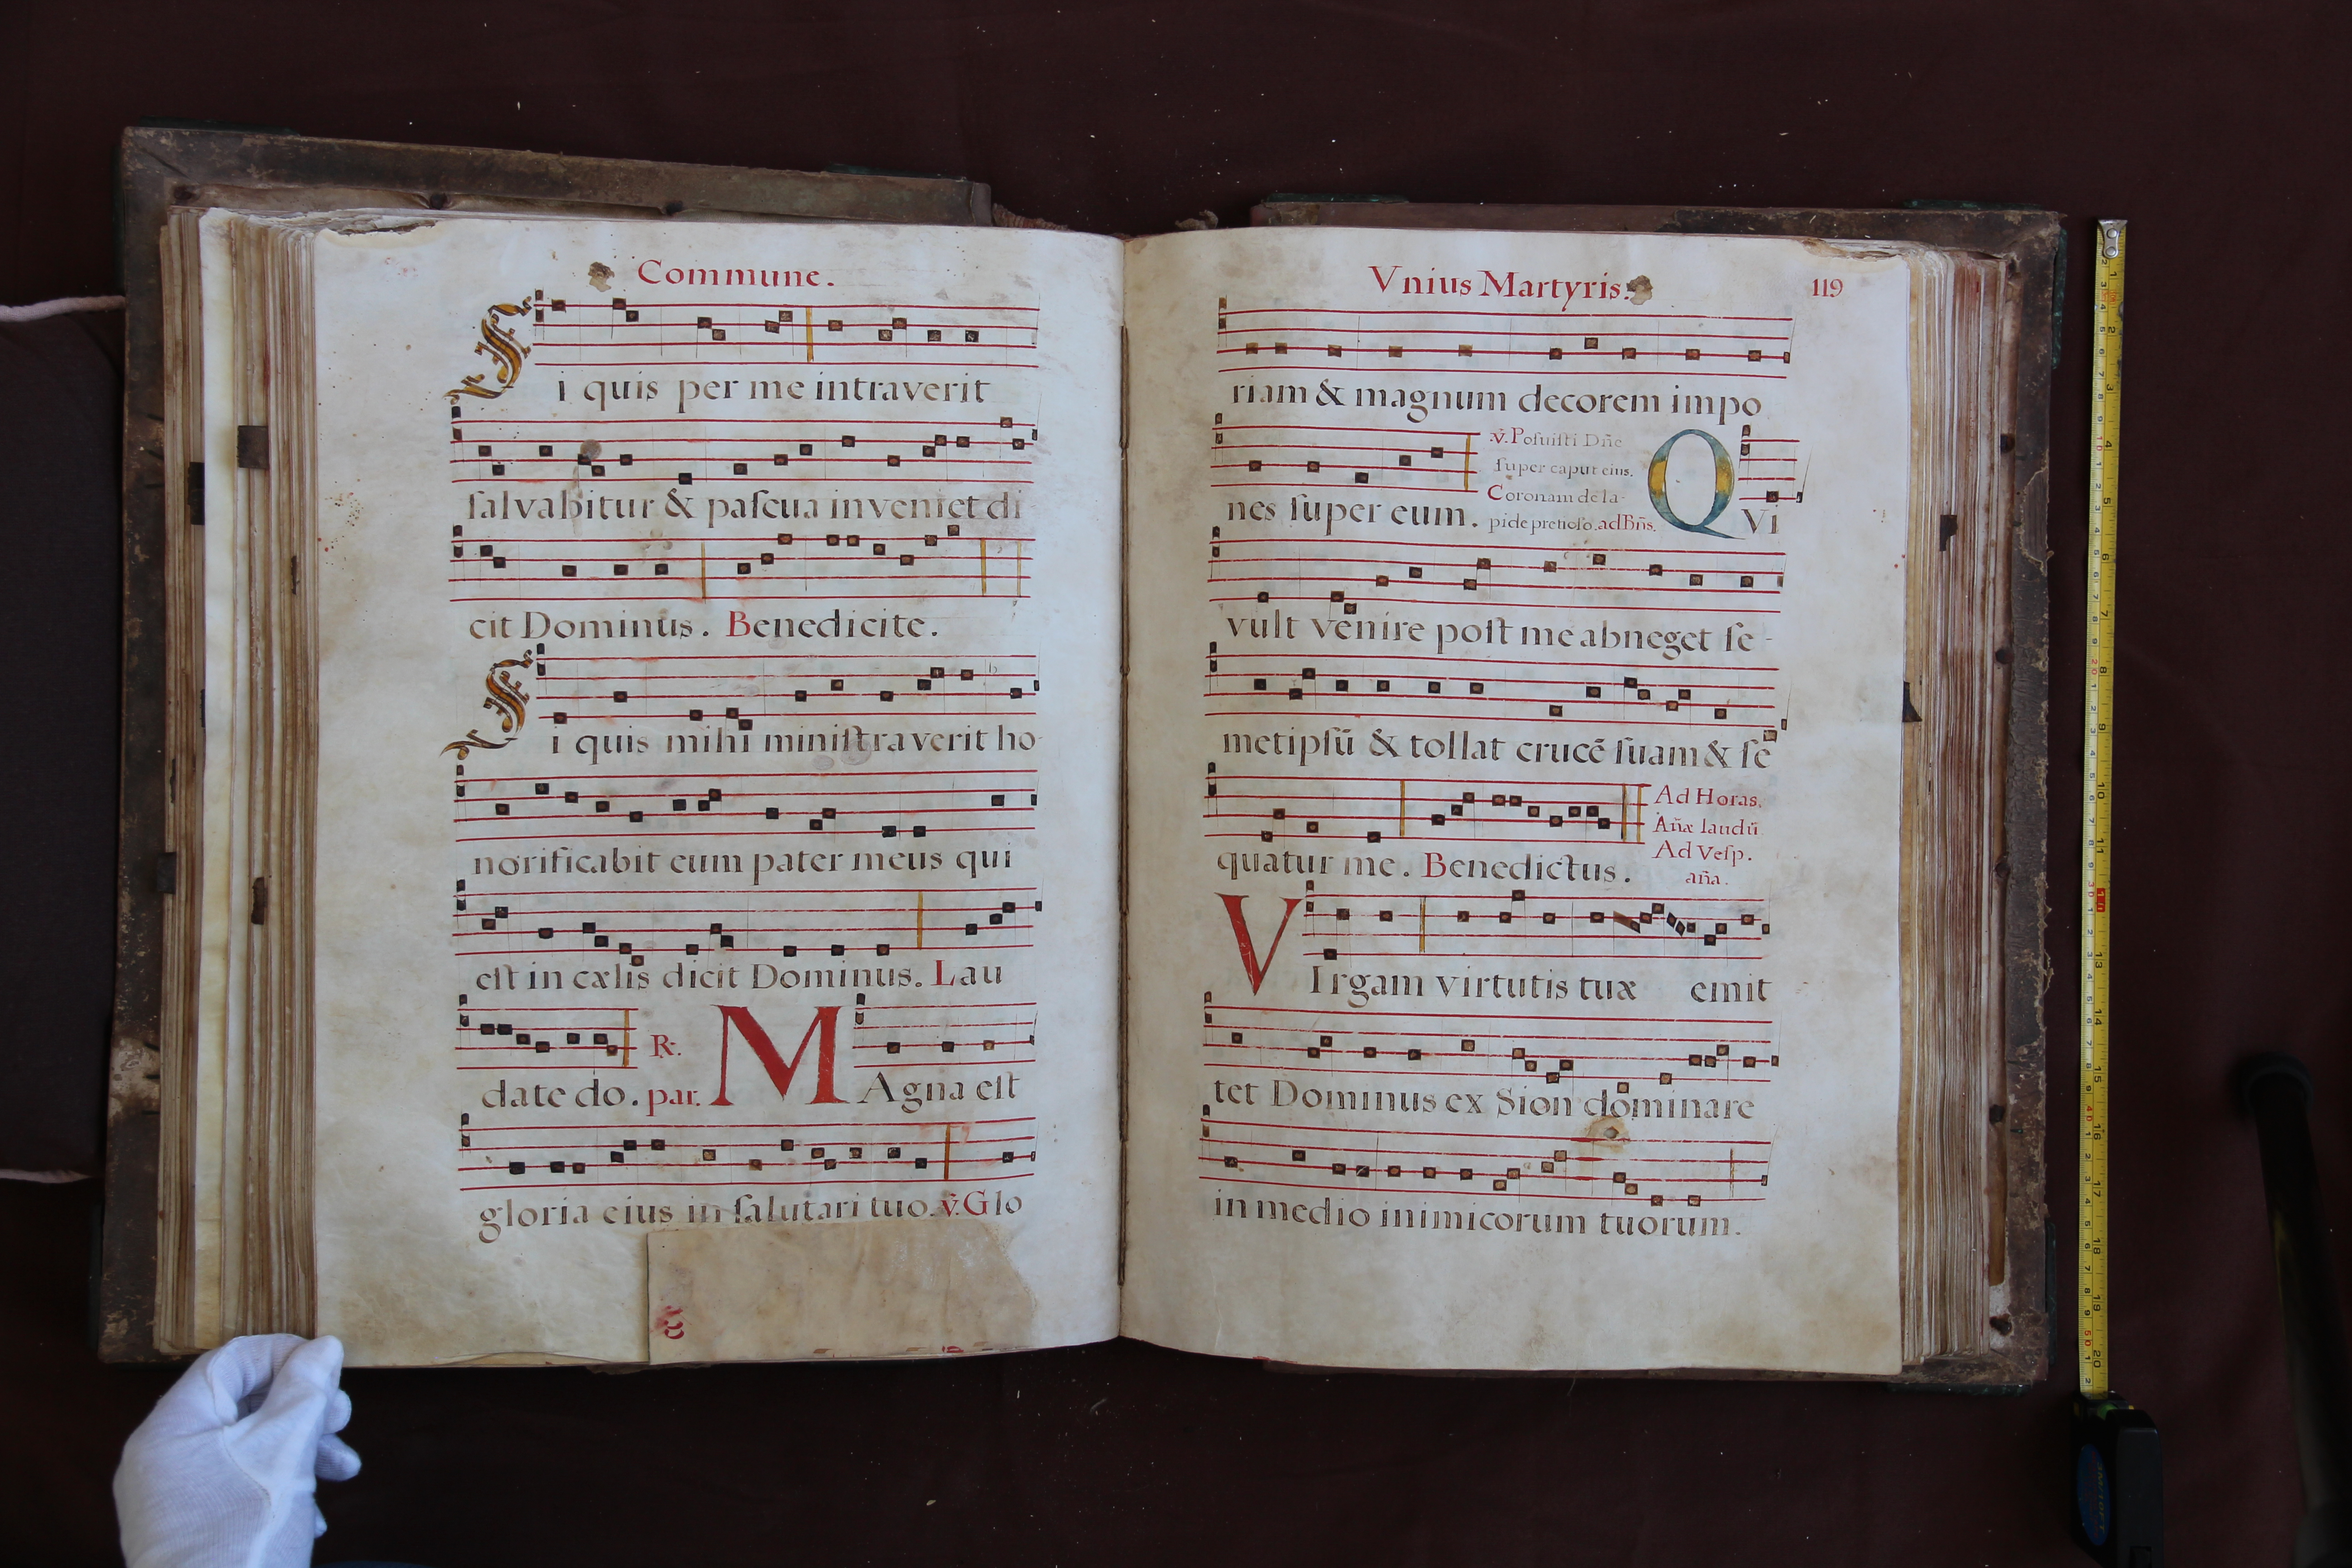 Commune.
Si quis per me intraverit
ſalvabitur & paſcua inveniet di
cit Dominus. Benedicite.
Si quis mihi miniſtraverit ho-
norificabit eum pater meus qui
eſt in cælis dicit Dominus. Lau
date do. par. ℟.
MAgna eſt
gloria eius in ſalutari tuo. ℣. Glo
Vnius Martyris.
119
riam & magnum decorem impo
nes ſuper eum.
℣. Poſuiſti Dñe
ſuper caput eius.
Coronam de la-
pide pretioſo. ad Bñs.
QVi
vult venire poſt me abneget ſe-
metipſū & tollat crucē ſuam & ſe
quatur me. Benedictus.
Ad Horas.
Añæ laudū
Ad Veſp.
aña.
VIrgam virtutis tuæ emit
tet Dominus ex Sion dominare
in medio inimicorum tuorum.